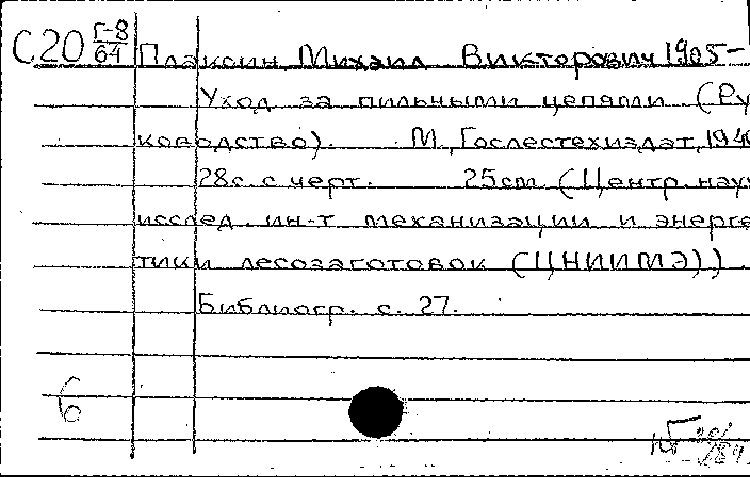 С20 Г-8/64 Плаксин, Михаил Викторович 1905-
Уход за пильными цепями (Ру
ководство). М., Гослестехиздат, 194
28с. с черт. 25cm. (Центр. науч
исслед. ин-т механизации и энерге
тики лесозаготовок (ЦНИИМЭ))
Библиогр. с. 27.
6